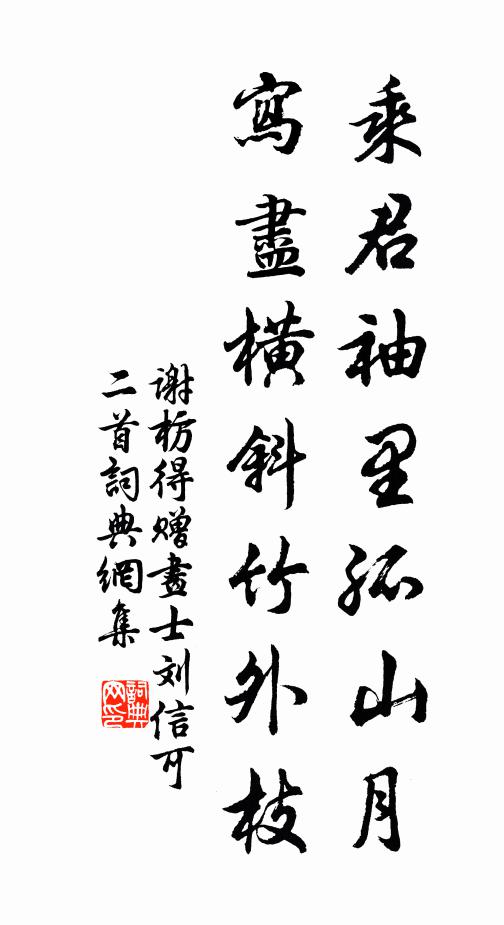 乘君袖里孤山月
寫盡橫斜竹外枝
谢枋得赠畫士刘信可
二首詞典網集
詞典網印